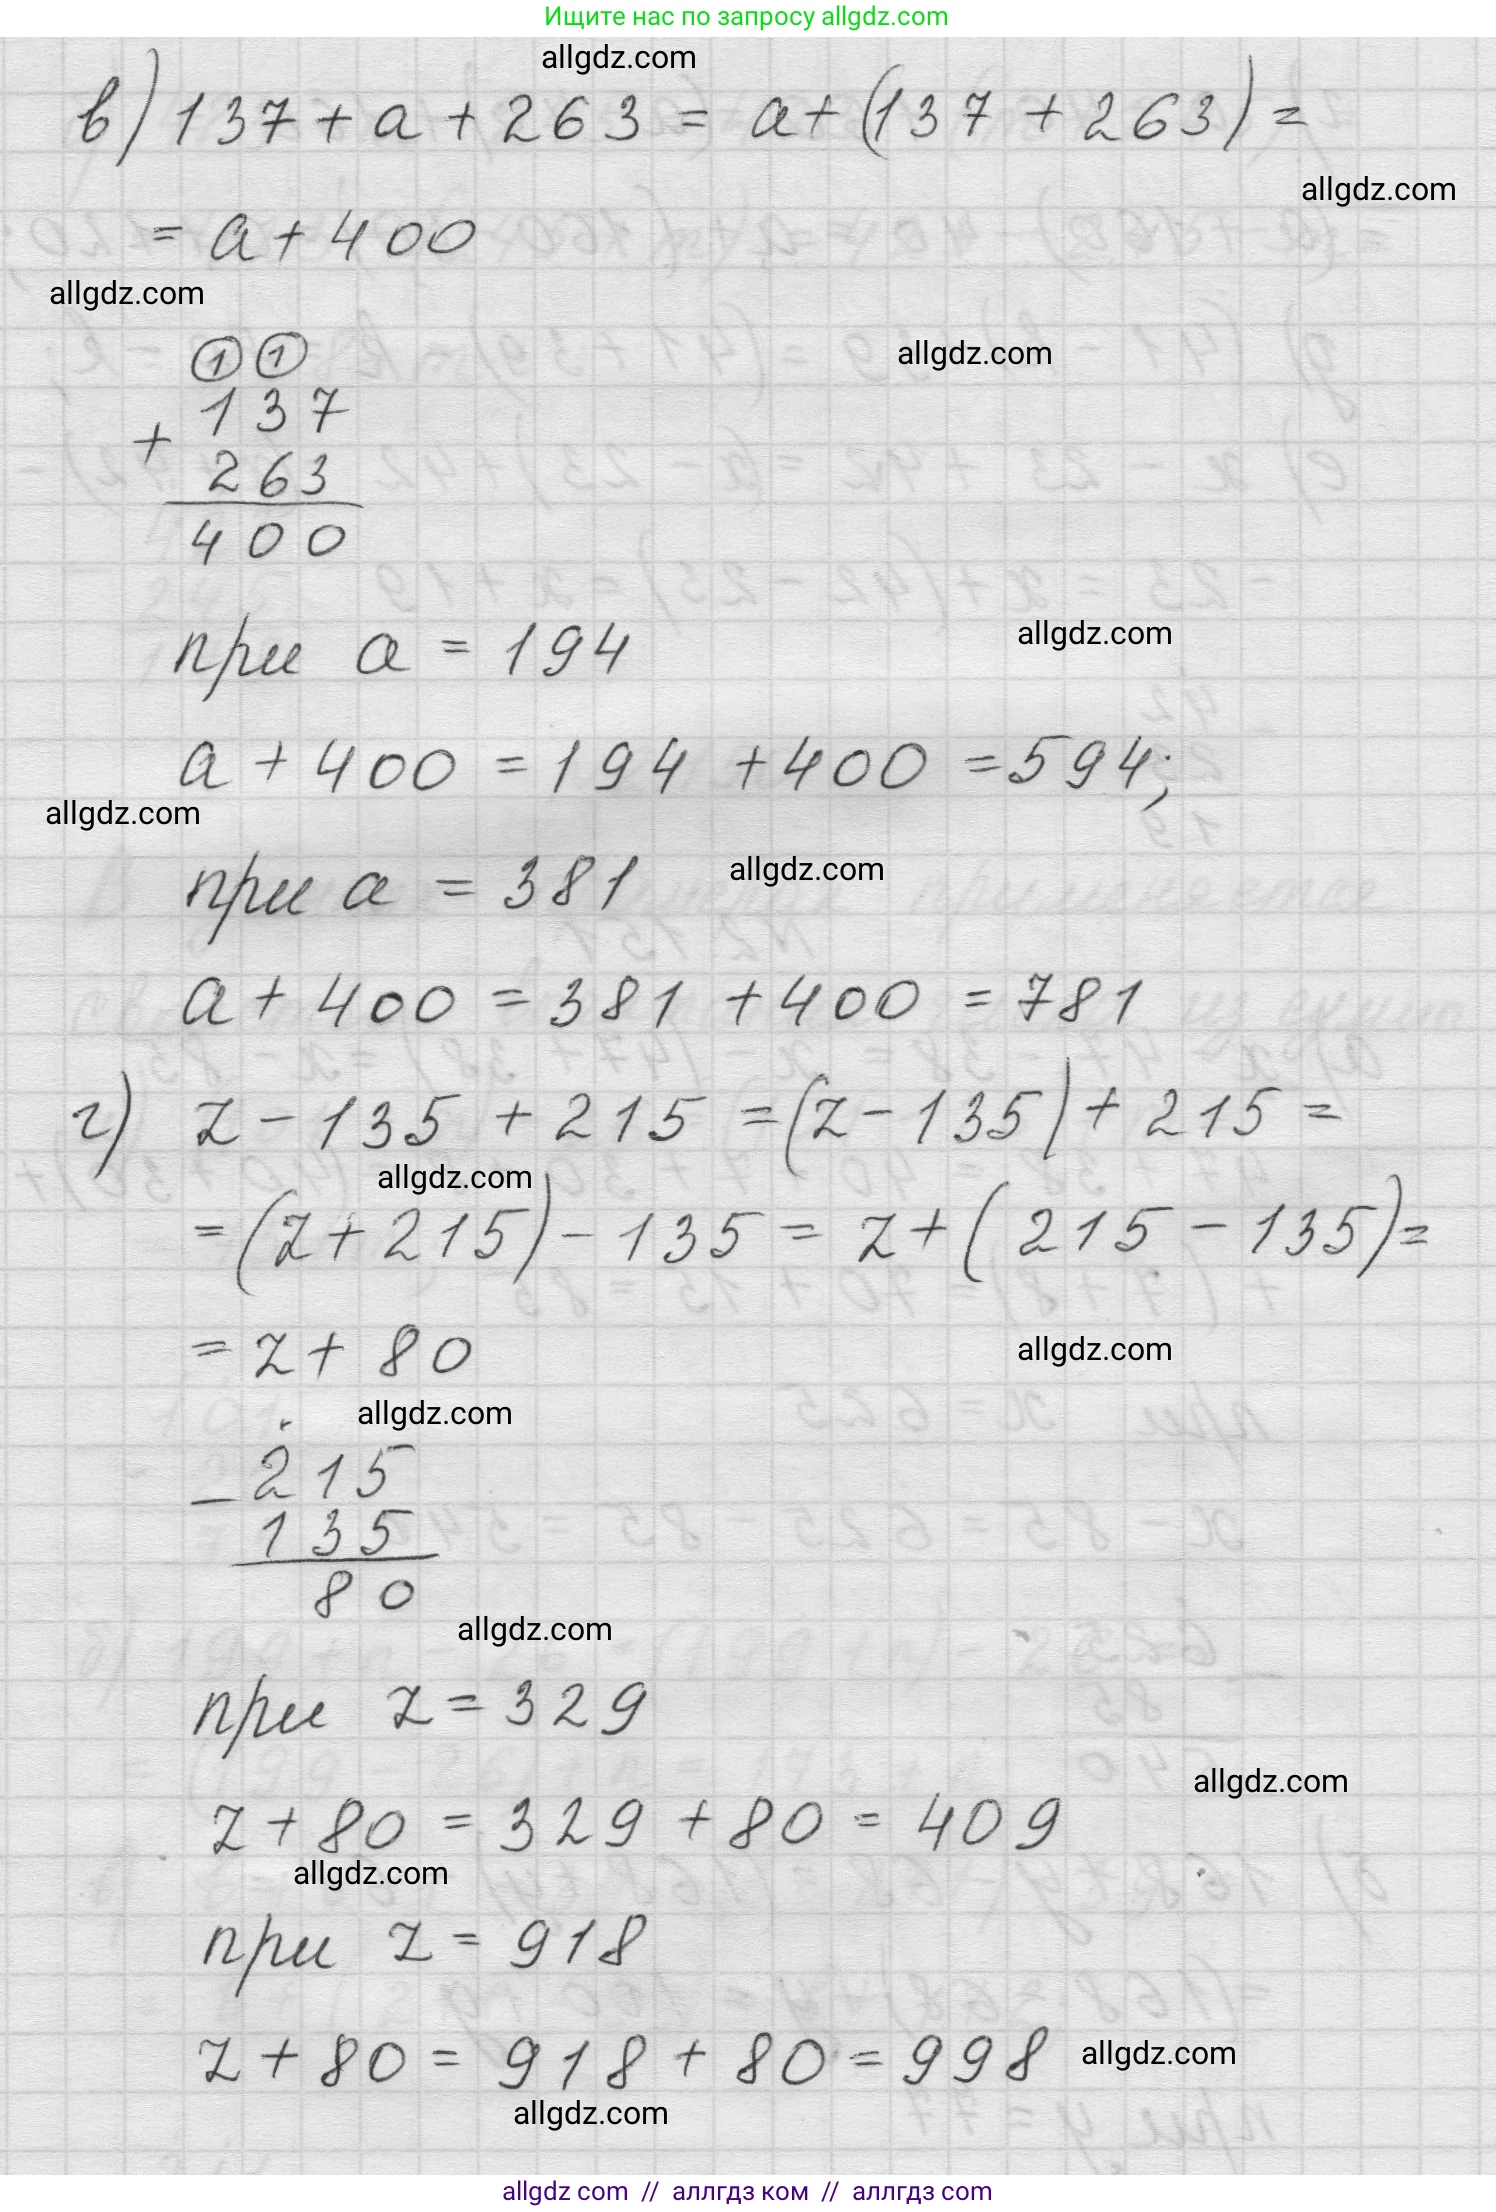 Ищите нас по запросу allgdz.com
allgdz.com
в) 137 + a + 263 = a + (137 + 263) =
allgdz.com
= a + 400
allgdz.com
1 1
allgdz.com
137
+
263
400
при a = 194
allgdz.com
a + 400 = 194 + 400 = 594;
allgdz.com
при a = 381
allgdz.com
a + 400 = 381 + 400 = 781
г) z - 135 + 215 = (z - 135) + 215 =
allgdz.com
= (z + 215) - 135 = z + (215 - 135) =
= z + 80
allgdz.com
allgdz.com
215
-
135
80
allgdz.com
при z = 329
allgdz.com
z + 80 = 329 + 80 = 409
allgdz.com
при z = 918
z + 80 = 918 + 80 = 998
allgdz.com
allgdz.com
allgdz.com // аллгдз ком // аллгдз com